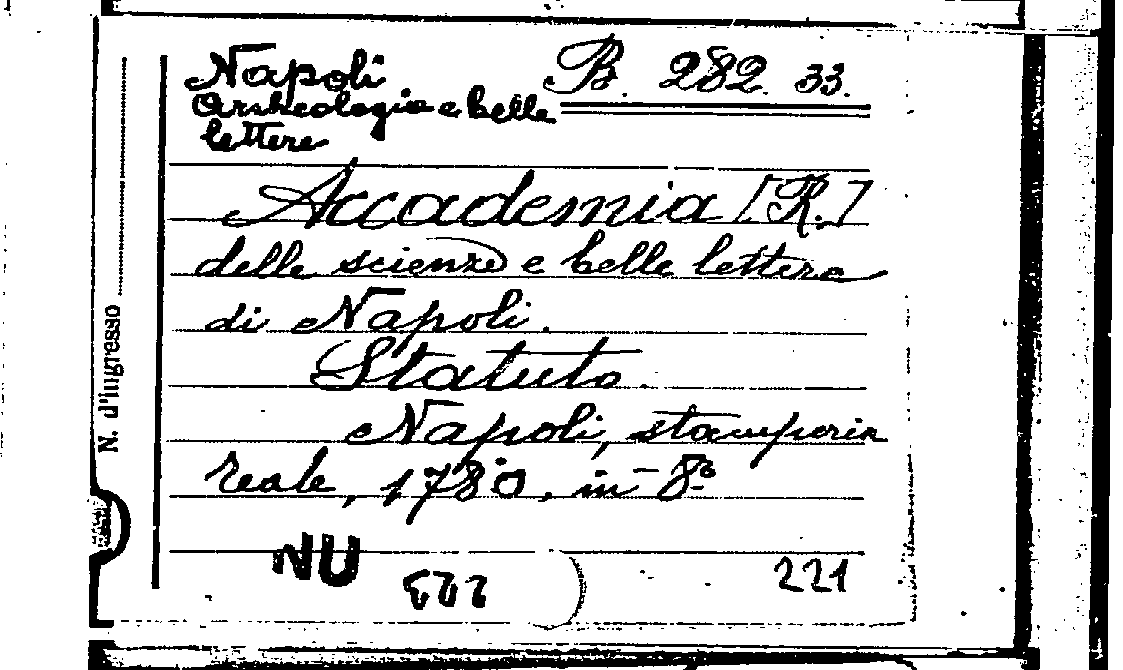 Napoli B. 282. 33.
Archeologia e belle
lettere
Accademia [R.]
delle scienze e belle lettere
di Napoli.
Statuto.
Napoli, stamperia
reale, 1780, in-8º
NU
221
N. d'ingresso